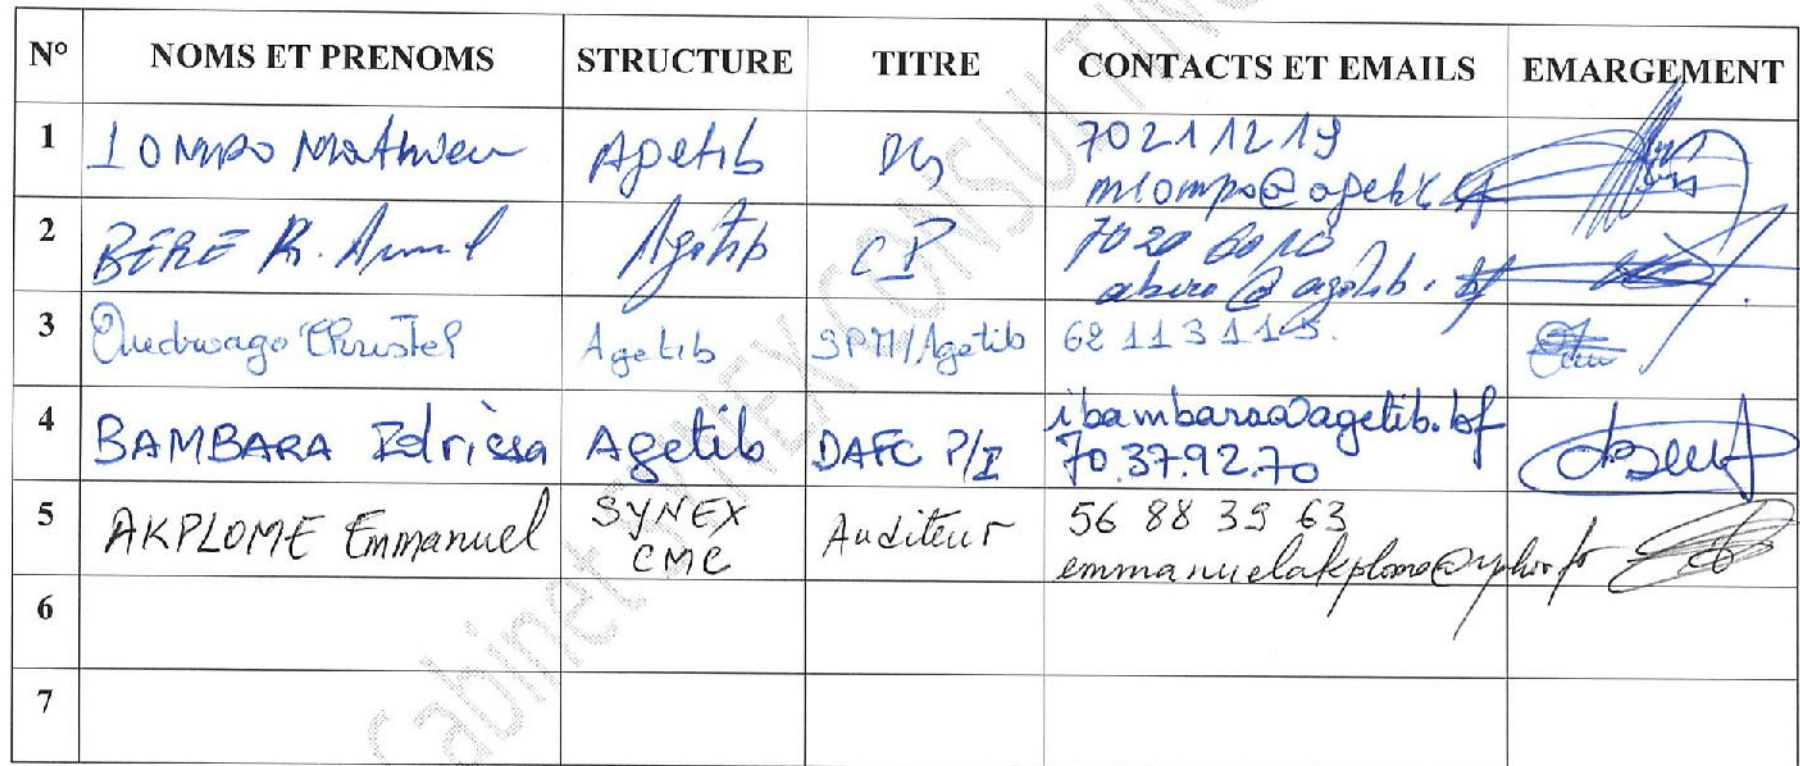 N° NOMS ET PRENOMS STRUCTURE TITRE CONTACTS ET EMAILS EMARGEMENT
1 LOMPO Mathieu Agetib DG 70211219
mlompo@agetib.bf
2 BERE R. Armel Agetib CP 7020 6010
abere@agetib.bf
3 Ouedraogo Christel Agetib SPM/Agetib 62 11 3 1 1 5.
4 BAMBARA Idrissa Agetib DAFC P/I ibambara@agetib.bf
70.37.92.70
5 AKPLOME Emmanuel SYNEX Auditeur 56 88 39 63
CMC emmanuelakplome@yahoo.fr
6
7
Cabinet SYNEX CONSULTING